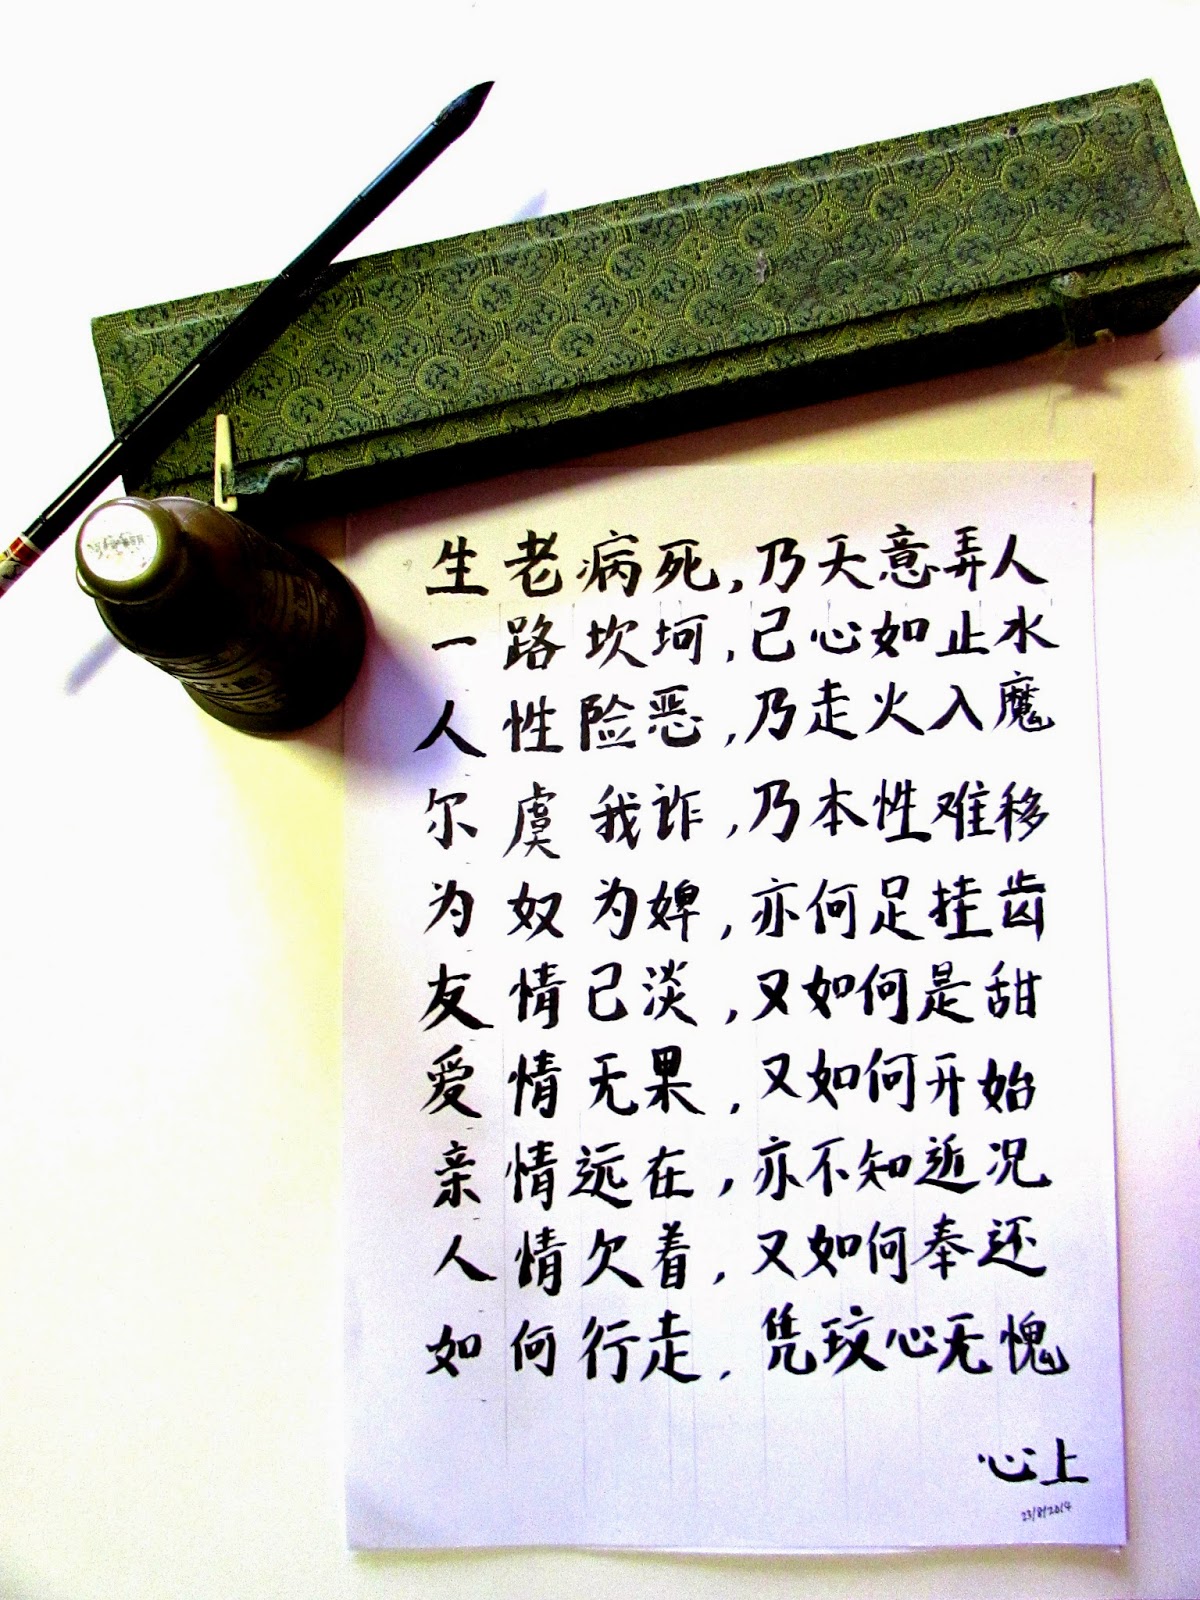 生老病死,乃天意弄人
一路坎坷,己心如止水
人性险恶,乃走火入魔
尔虞我诈,乃本性难移
为奴为婢,亦何足挂齿
友情已淡,又如何是甜
爱情无果,又如何开始
亲情远在,亦不知近况
人情欠着,又如何奉还
如何行走,凭玟心无愧
心上
23/8/2014